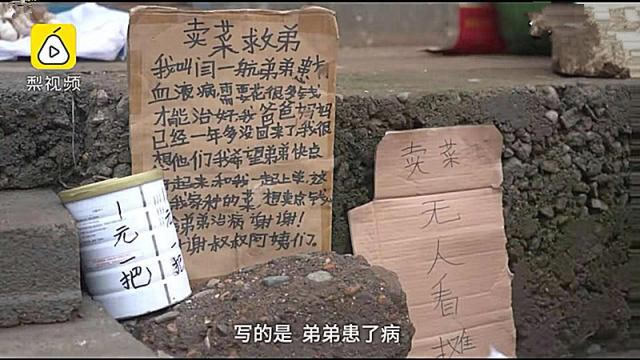 梨视频
卖菜救弟
我叫闫一航弟弟患有
血液病需要花很多钱
才能治好我爸爸妈妈
已经一年多没回来了我很
想他们我希望弟弟快点
好起来和我一起上学这
我家种的菜想卖点钱
弟弟治病谢谢!
谢叔叔阿姨们.
1元一把
卖菜
无人看摊
写的是 弟弟患了病